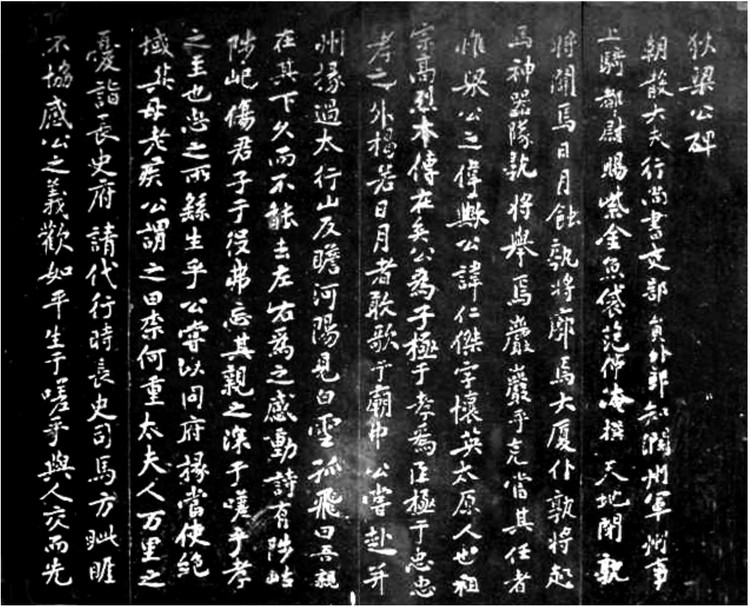 狄梁公碑
朝散大夫行尚書吏部員外郎知潤州軍州事
上騎都尉賜紫金魚袋范仲淹撰 天地閉孰
將闢焉日月蝕孰將廓焉大厦仆孰將起
焉神器隊孰將舉焉巖巖乎克當其任者
惟梁公之偉歟公諱仁傑字懷英太原人也祖
宗高烈本傳在矣公為子極于孝為臣極于忠忠
孝之外揭若日月者敢歌于廟中公嘗赴并
州掾過太行山反瞻河陽見白雲孤飛曰吾親
在其下久而不能去左右為之感動詩有陟岵
陟屺傷君子于役弗忘其親之深于嗟乎孝
之至也忠之所繇生乎公嘗以同府掾當使絶
域其母老疾公謂之曰柰何重太夫人万里之
憂詣長史府請代行時長史司馬方眦睚
不協感公之義歡如平生于嗟乎與人交而先